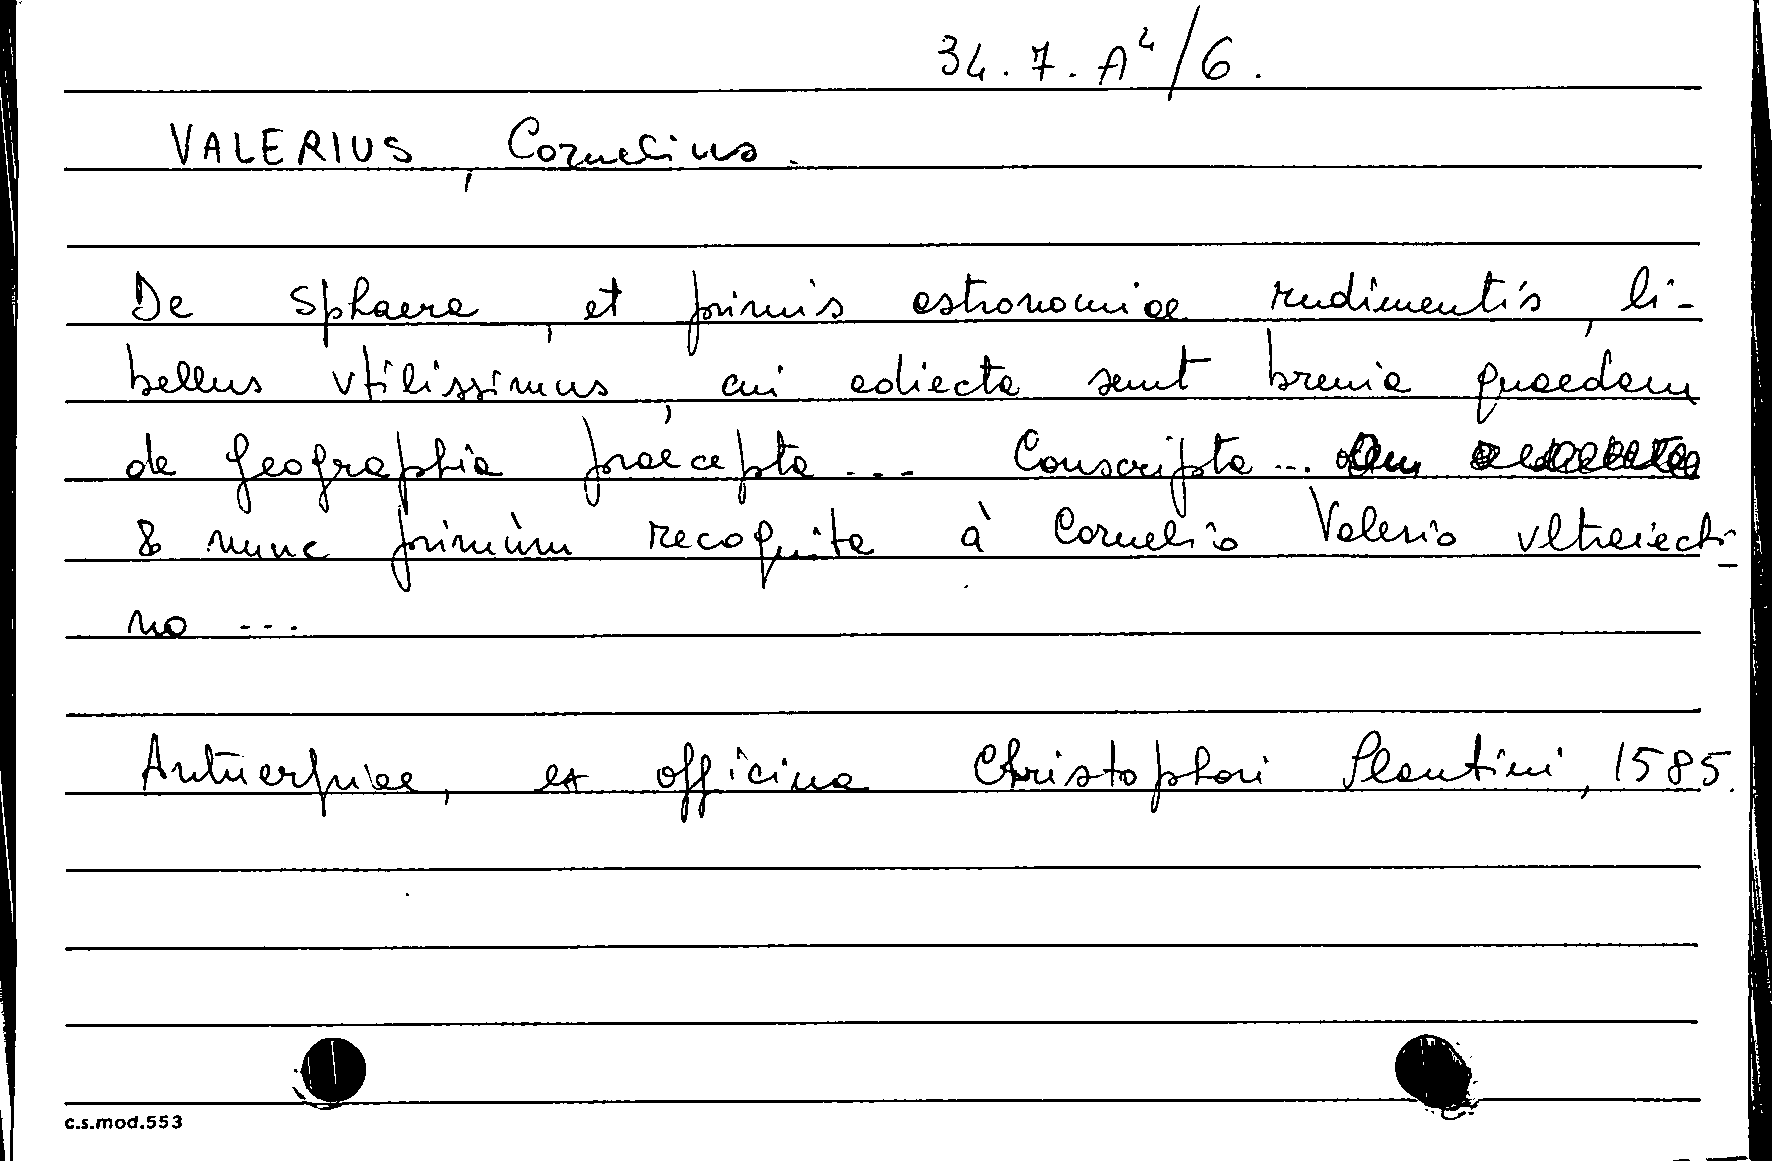 34.7.A⁴/6.
VALERIUS, Cornelius.
De sphaera, et primis astronomiae rudimentis, li-
bellus vtilissimus, cui adiecta sunt breuia quaedam
de geographia praecepta... Conscripta...
& nunc primùm recognita à Cornelio Valerio vltraiecti-
no ...
Antuerpiae, ex officina Christophori Plantini, 1585.
c.s.mod.553